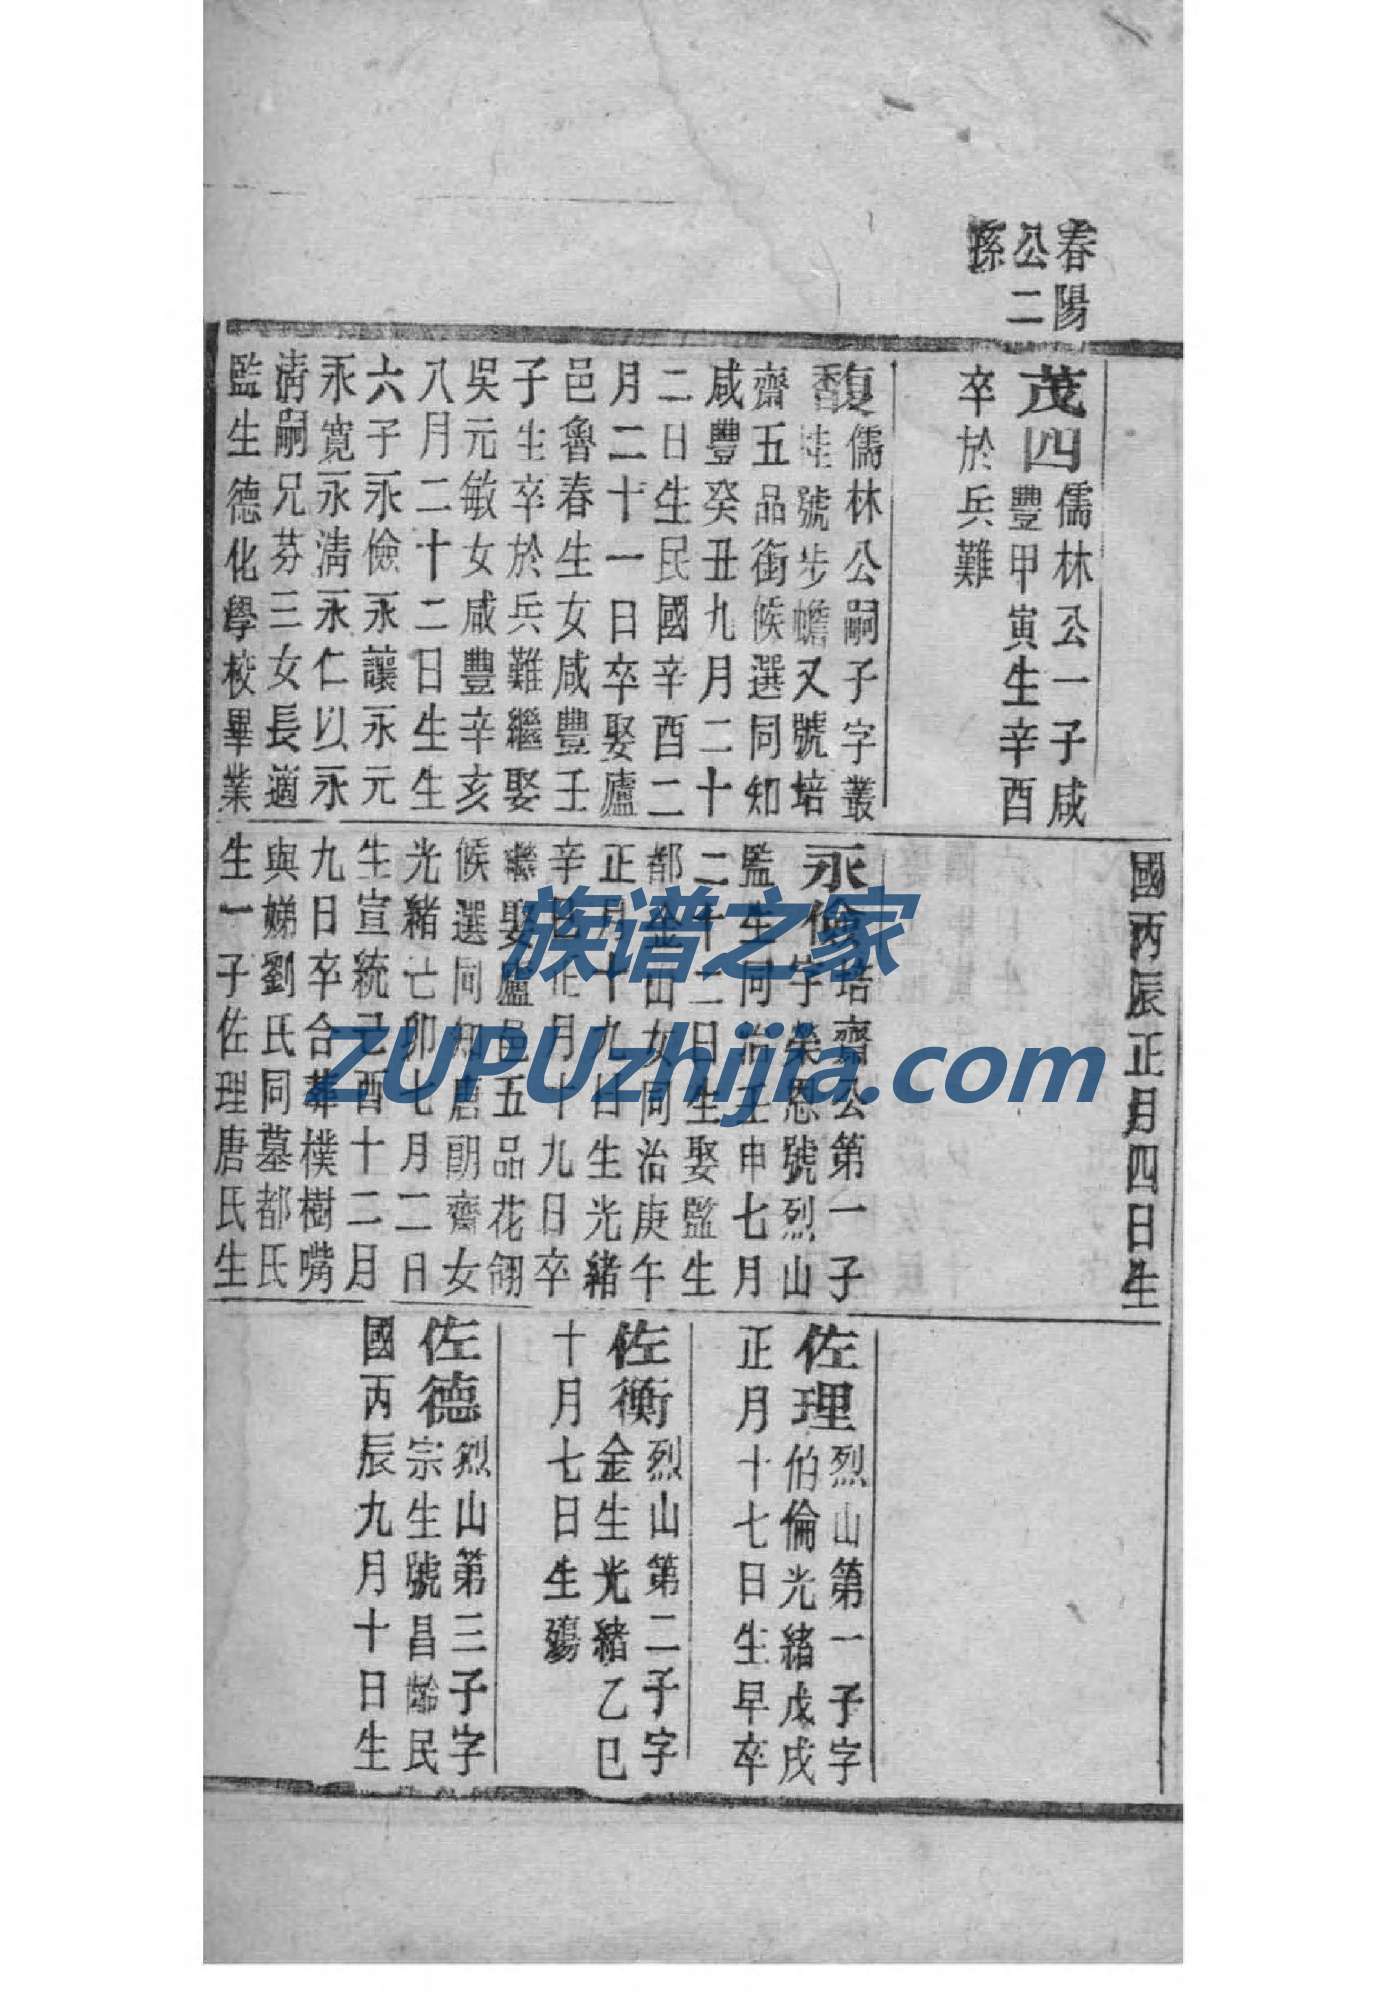 春陽
公二
孫
茂四儒林公一子咸
豐甲寅生辛酉
卒於兵難
馥儒林公嗣子字叢
香桂號步蟾又號培
齋五品銜候選同知
咸豐癸丑九月二十
二日生民國辛酉二
月二十一日卒娶廬
邑魯春生女咸豐壬
子生卒於兵難繼娶
吳元敏女咸豐辛亥
八月二十二日生生
六子永儉永讓永元
永寬永淸永仁以永
淸嗣兄芬三女長適
監生德化學校畢業
國丙辰正月四日生
永儉培齋公第一子
字榮恩號烈山
監生同治壬申七月
二十二日生娶監生
都金田女同治庚午
正月十九日生光緒
辛巳正月十九日卒
繼娶廬邑五品花翎
候選同知唐朗齋女
光緒己卯七月二日
生宣統己酉十二月
九日卒合葬樸樹嘴
與娣劉氏同墓都氏
生一子佐理唐氏生
佐理烈山第一子字
伯倫光緒戊戌
正月十七日生早卒
佐衡烈山第二子字
金生光緒乙巳
十月七日生殤
佐德烈山第三子字
宗生號昌齡民
國丙辰九月十日生
族谱之家
ZUPUzhijia.com